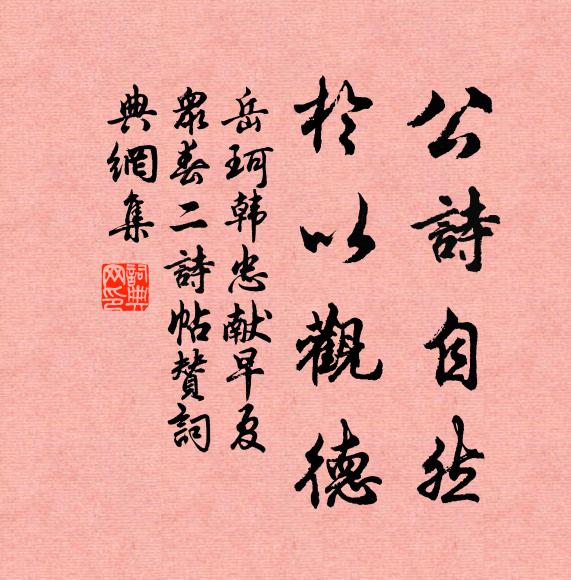 公詩自然
於以觀德
岳珂韩忠献早夏
眾春二詩帖贊詞
典網集
詞典网印